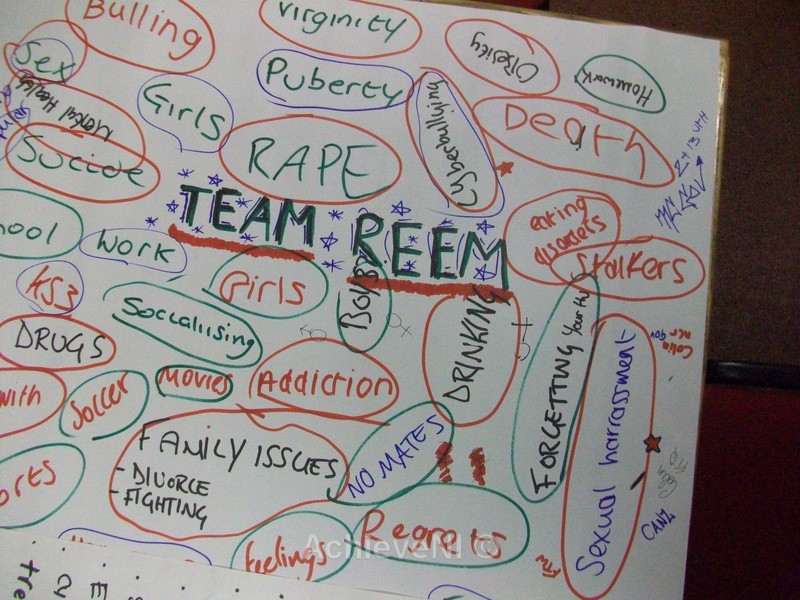 Bulling
Virginity
Obesity
Homework
Sex
Mental Health
Girls
Puberty
Cyberbullying
Death
Sucide
RAPE
TEAM REEM
eating
disorders
Stalkers
ool
Work
KS3
Girls
Boys
Socialising
DRINKING
FORGETTING Your Hw
Sexual harrassment
DRUGS
with
Soccer
Movies
Addiction
FAMILY ISSUES
- DIVORCE
- FIGHTING
NO MATES
orts
feelings
Regrets
AchieveNI ©